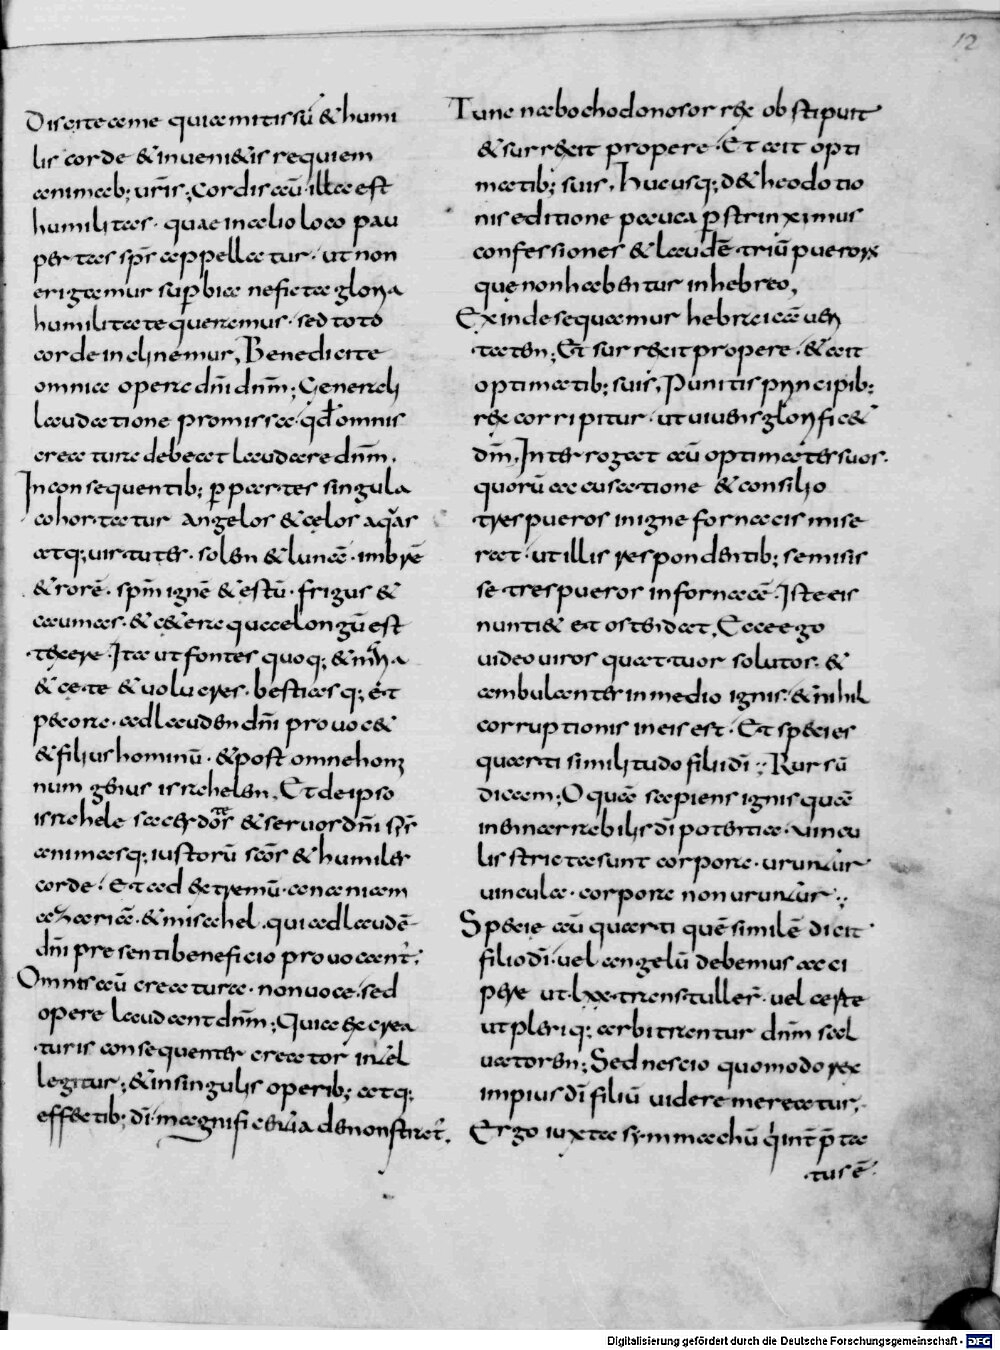 12
Discite a me quia mitis sū & humi
lis corde & inueni&is requiem
animab; urīs; Cordis aū illa est
humilitas · quae in alio loco pau
pertas sp̄s appellatur · ut non
erigamur sup̱bia nefic ta gloria
humilitate queramus · sed toto
corde inclinemur, Benedicite
omnia opera dn̄i dn̄m; Generali
laudatione promissa · qđ omnis
creatura debeat laudare dn̄m.
In consequentib; p̱partes singula
cohortatur angelos & cęlos aquas
atq; uirtutes · solen & lunā · imbrē
& rorē · sp̄m ignē & estū · frigus &
caumas · & c&era quae longū est
texere · Ita ut fontes quoq; & maria
& cete & uolucres · bestias q; et
pecora · ad laudendn̄i prouoc&
& filius hominū · & post omne homi
num genus israhelen. Et de ipso
israhele sacerdotes & seruos dn̄i sp̄s
animasq; iustorū scōs & humiles
corde · Et ad extremū · ananiam
azariā · & misahel · qui ad laudē
dn̄i presenti beneficio prouocant̄.
Omnis aū creatura · non uoce · sed
opere laudant dn̄m; Quia ex crea
turis consequenter creator intel
legitur; & in singulis operib; atq;
effectib; dī magnificentia demonstrat̄.
Tunc nabochodonosor rex obstipuit
& surrexit propere · Et ait opti
matib; suis, Hucusq; d& heodotio
nis editione pauca p̱strinximus
confessiones & laudē triū puerorum
quę non habentur in hebreo,
Exinde sequamur hebraicā ueri
taten; Et surrexit propere · & ait
optimatib; suis, Punitis principib;
rex corripitur · ut uiuens glorific&
dm̄, Interrogat aū optimates suos ·
quorū accusatione & consilio
tres pueros in igne fornacis mise
rat · ut illis respondentib; se misis
se tres pueros in fornacē · Iste eis
nunti& et ostendat, Ecce ego
uideo uiros quattuor solutos · &
ambulantes in medio ignis · & nihil
corruptionis in eis est · Et species
quarti similitudo filii dī; Rursū
dicam; O quā sapiens ignis quā
inenarrabilis dī potentia · uincu
lis stricta sunt corpora · uruntur
uincula · corpora non uruntur;
Specię aū quarti quē similē dicit
filio dī · uel angelū debemus acci
pere ut · lxx · transtuler̄ · uel certe
ut pleriq; arbitrantur dn̄m sal
uatoren; Sed nescio quomodo rex
impius dī filiū uidere mereatur,
Ergo iuxta symmachū q̇ int̄p̄ta
tus ē
Digitalisierung gefördert durch die Deutsche Forschungsgemeinschaft - DFG